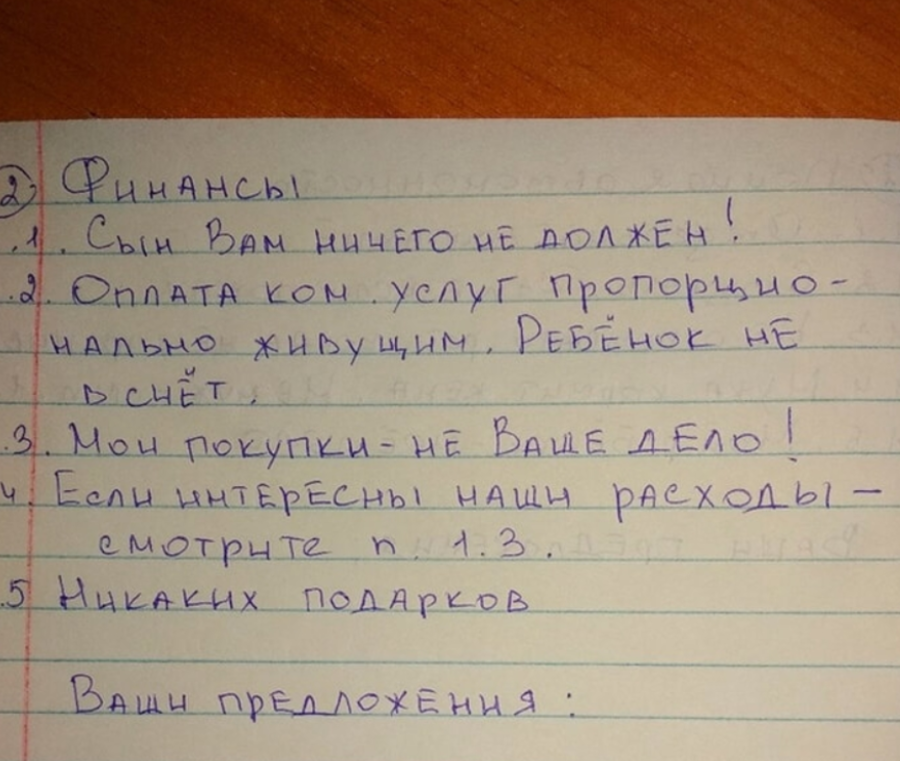 2) Финансы
.1. Сын Вам ничего не должен!
.2. Оплата ком. услуг пропорцио-
нально живущим. Ребёнок не
в счёт.
.3. Мои покупки - не Ваше дело!
4. Если интересны наши расходы -
смотрите п. 1.3.
.5 Никаких подарков
Ваши предложения: